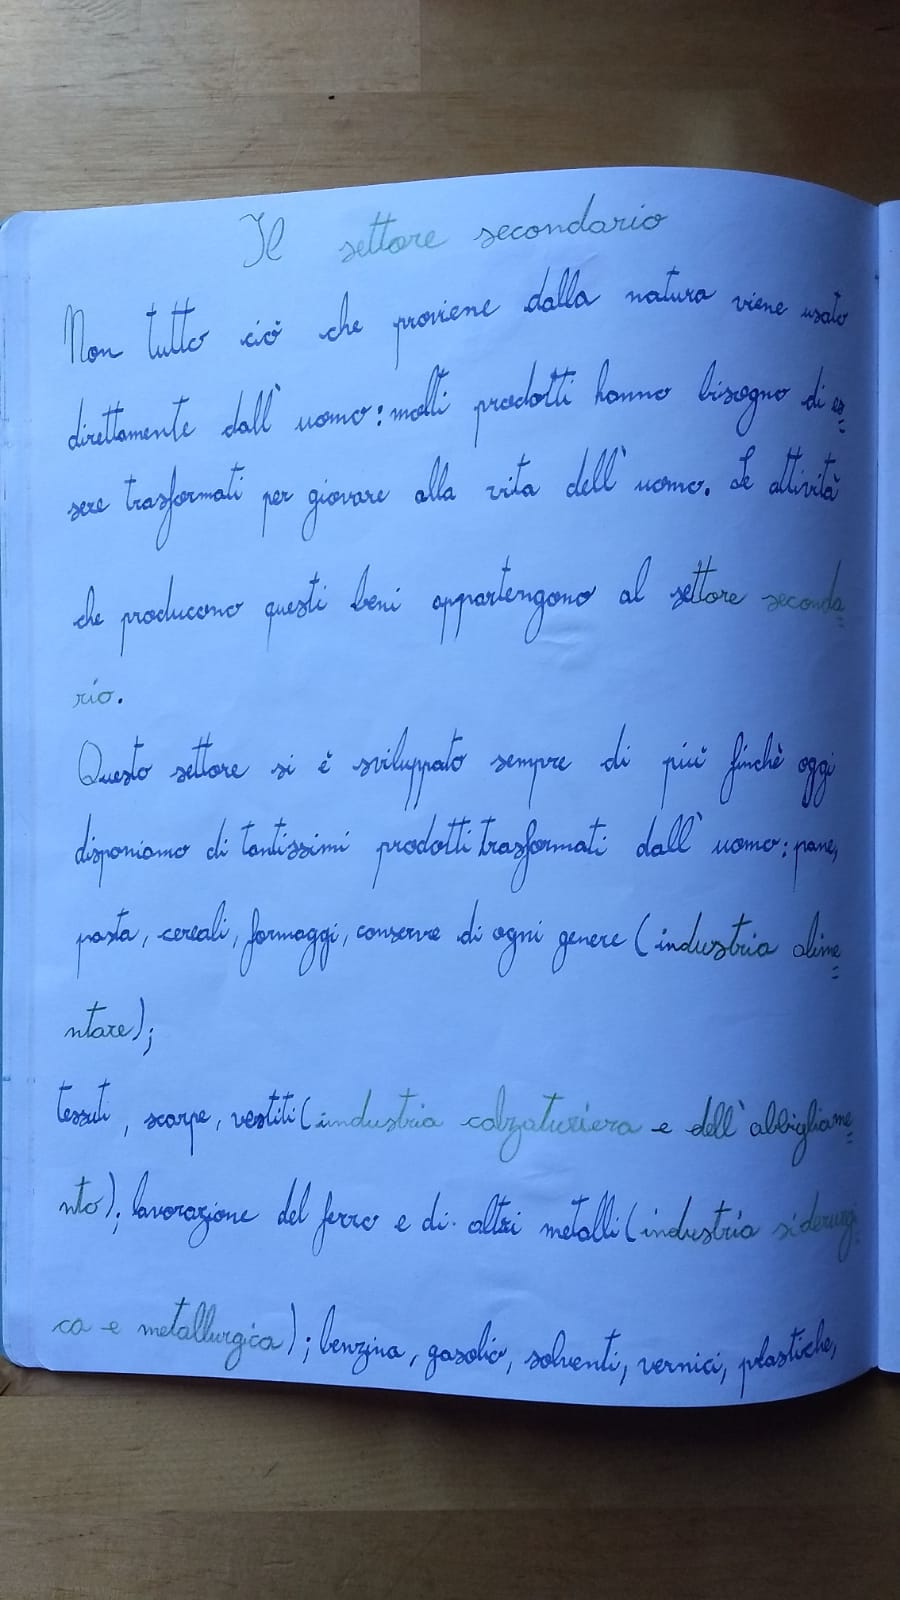 Il settore secondario
Non tutto ciò che proviene dalla natura viene usato
direttamente dall'uomo: molti prodotti hanno bisogno di es=
sere trasformati per giovare alla vita dell'uomo. Le attività
che producono questi beni appartengono al settore seconda=
rio.
Questo settore si è sviluppato sempre di più finchè oggi
disponiamo di tantissimi prodotti trasformati dall'uomo: pane,
pasta, cereali, formaggi, conserve di ogni genere (industria alime=
ntare);
tessuti, scarpe, vestiti (industria calzaturiera e dell'abbigliame=
nto); lavorazione del ferro e di altri metalli (industria siderurgi=
ca e metallurgica); benzina, gasolio, solventi, vernici, plastiche,